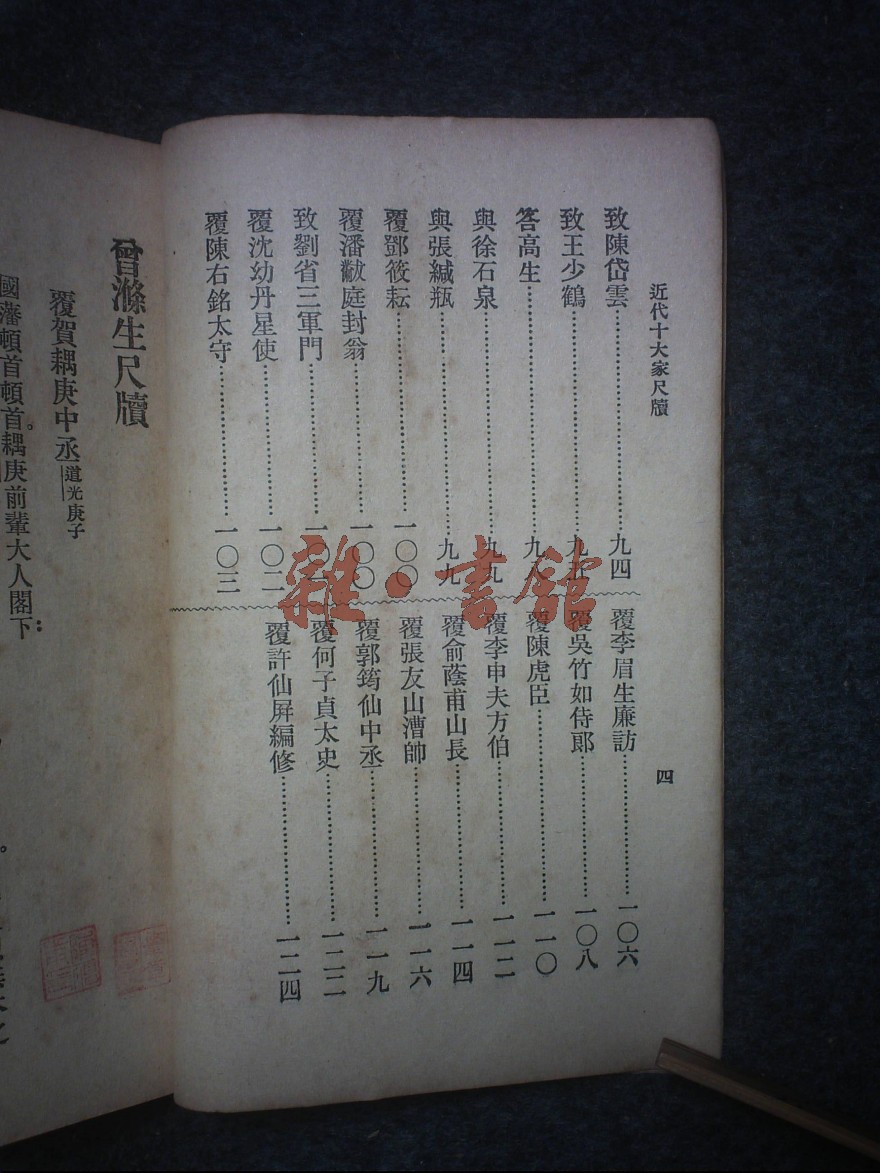 近代十大家尺牘
四
致陳岱雲……九四
致王少鶴……九五
答高生……九八
與徐石泉……九九
與張緘瓶……九九
覆鄧筱耘……一〇〇
覆潘黻庭封翁……一〇〇
致劉省三軍門……一〇
覆沈幼丹星使……一〇二
覆陳右銘太守……一〇三
覆李眉生廉訪……一〇六
覆吳竹如侍郎……一〇八
覆陳虎臣……一一〇
覆李申夫方伯……一一二
覆俞蔭甫山長……一一四
覆張友山漕帥……一一六
覆郭筠仙中丞……一一九
覆何子貞太史……一二二
覆許仙屏編修……一二四
雜·書館
曾滌生尺牘
覆賀耦庚中丞道光庚子
國藩頓首頓首。耦庚前輩大人閣下：